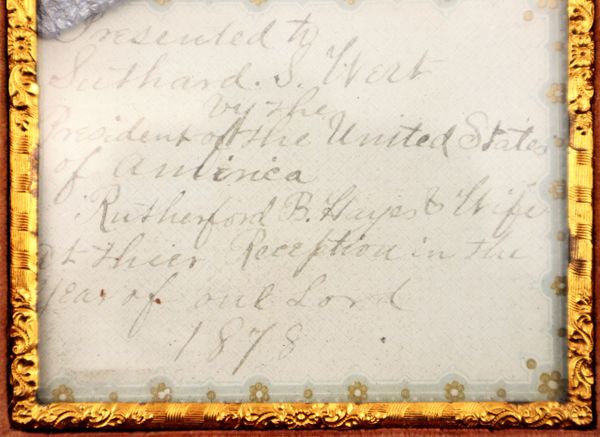 Presented to
Suthard. S. Wert
by the
President of the United States
of America
Rutherford B. Hayes & Wife
at thier Reception in the
year of our Lord
1878